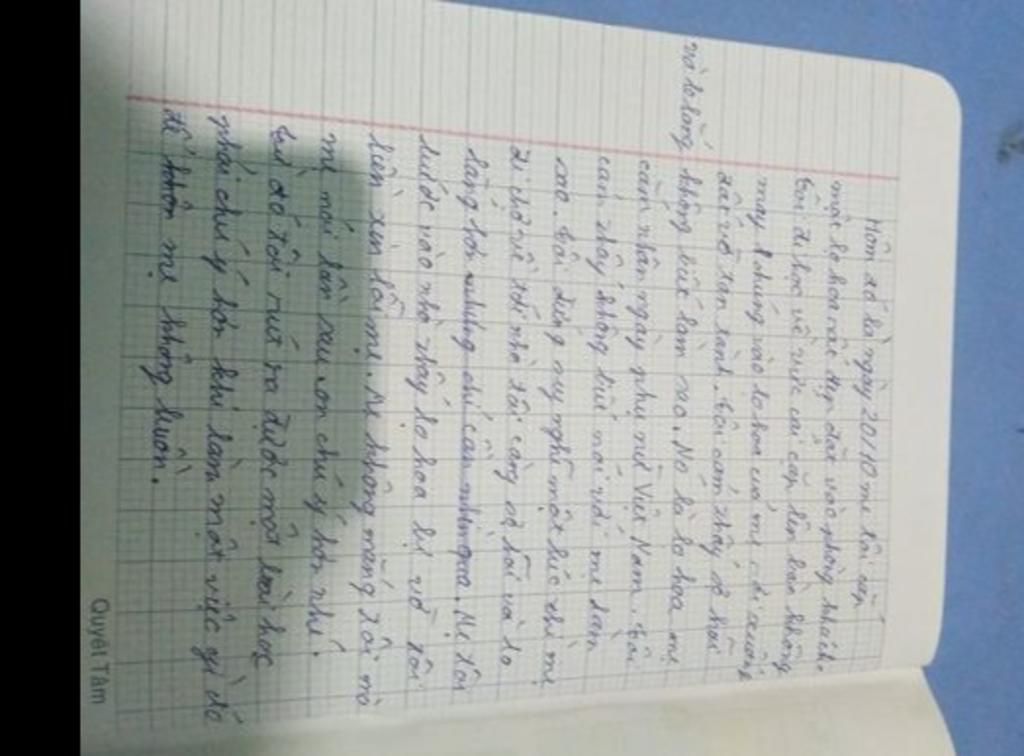 Hôm đó là ngày 20/10 mẹ tôi cắm
một lọ hoa rất đẹp đặt vào phòng khách.
Tôi đi học về vứt cái cặp lên bàn không
may trúng vào lọ hoa của mẹ rơi xuống
đất vỡ tan tành. Tôi cảm thấy sợ hãi
và lo lắng không biết làm sao. Nó là lọ hoa mẹ
cắm nhân ngày phụ nữ Việt Nam. Tôi
cảm thấy không biết nói với mẹ làm
sao. Tôi đứng suy nghĩ một lúc thì mẹ
đi chợ về tới nhà tôi càng sợ hãi và lo
lắng hơn nhưng chỉ cần
bước vào nhà thấy lọ hoa bị vỡ tôi
liền xin lỗi mẹ. Mẹ không mắng tôi mà
mẹ nói lần sau con chú ý hơn nhé.
Từ đó tôi rút ra được một bài học
phải chú ý hơn khi làm một việc gì đó
để khôn mẹ không buồn.
Quyết Tâm